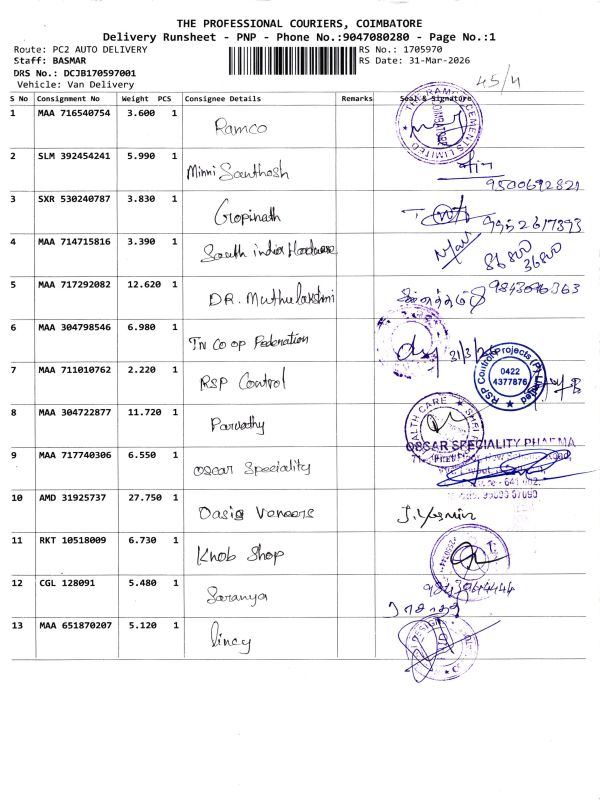 THE PROFESSIONAL COURIERS, COIMBATORE
Delivery Runsheet - PNP - Phone No.:9047080280 - Page No.:1
Route: PC2 AUTO DELIVERY RS No.: 1705970
Staff: BASMAR RS Date: 31-Mar-2026
DRS No.: DCJB170597001
Vehicle: Van Delivery
45/4
S No Consignment No Weight PCS Consignee Details Remarks Seal & Signature
1 MAA 716540754 3.600 1 Ramco
2 SLM 392454241 5.990 1 Minni Santhosh
9500692821
3 SXR 530240787 3.830 1 Gopinath 9952617393
4 MAA 714715816 3.390 1 South india Hardware
5 MAA 717292082 12.620 1 DR. Muthulakshmi
6 MAA 304798546 6.980 1 TN CO OP Federation
7 MAA 711010762 2.220 1 RSP Control RSP Control Projects (P) Limited 0422 4377876
8 MAA 304722877 11.720 1 Parvathy
9 MAA 717740306 6.550 1 Oscar Speciality OSCAR SPECIALITY PHARMA
10 AMD 31925737 27.750 1 Oasis Veneers J. Yasmin
11 RKT 10518009 6.730 1 Knob Shop
12 CGL 128091 5.480 1 Saranya
13 MAA 651870207 5.120 1 lincy